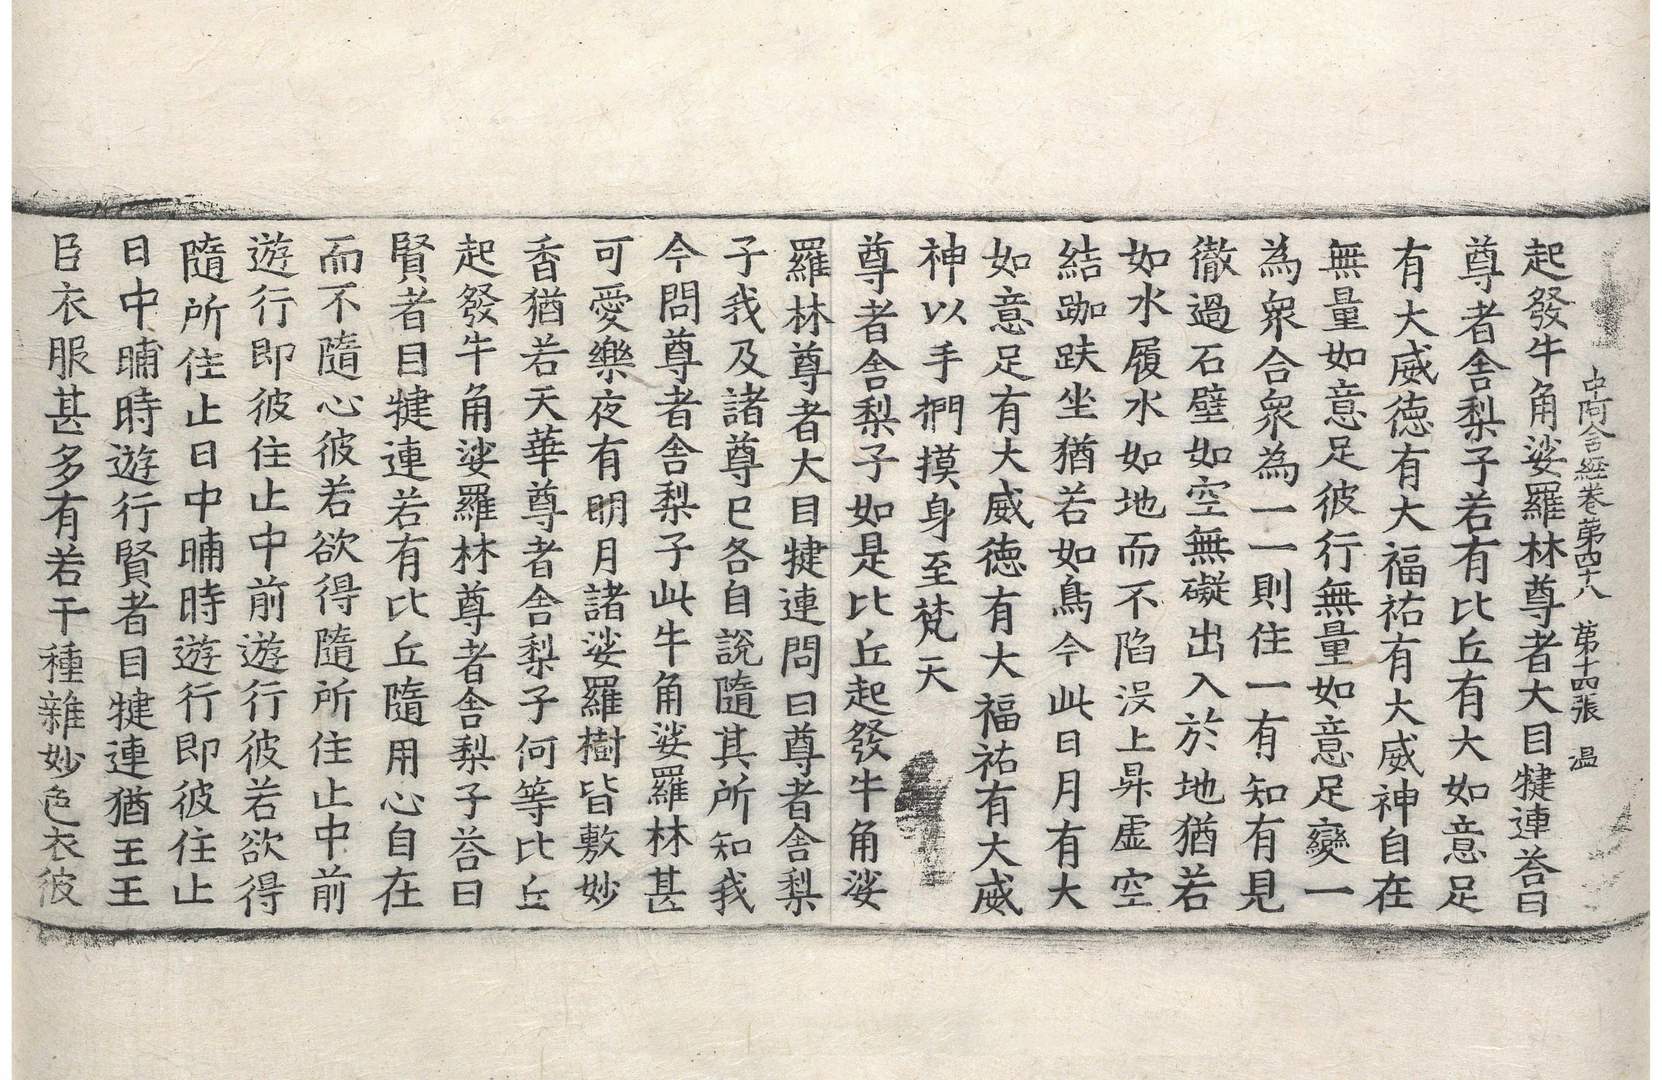 中阿含經卷第四十八 第十四張 温
起發牛角娑羅林尊者大目揵連荅曰
尊者舎梨子若有比丘有大如意足
有大威徳有大福祐有大威神自在
無量如意足彼行無量如意足變一
為衆合衆為一一則住一有知有見
徹過石壁如空無礙出入於地猶若
如水履水如地而不陷沒上昇虛空
結跏趺坐猶若如鳥今此日月有大
如意足有大威徳有大福祐有大威
神以手捫摸身至梵天
尊者舎梨子如是比丘起發牛角娑
羅林尊者大目揵連問曰尊者舎梨
子我及諸尊已各自說隨其所知我
今問尊者舎梨子此牛角娑羅林甚
可愛樂夜有明月諸娑羅樹皆敷妙
香猶若天華尊者舎梨子何等比丘
起發牛角娑羅林尊者舎梨子荅曰
賢者目揵連若有比丘隨用心自在
而不隨心彼若欲得隨所住止中前
遊行即彼住止中前遊行彼若欲得
隨所住止日中晡時遊行即彼住止
日中晡時遊行賢者目揵連猶王王
臣衣服甚多有若干種雜妙色衣彼